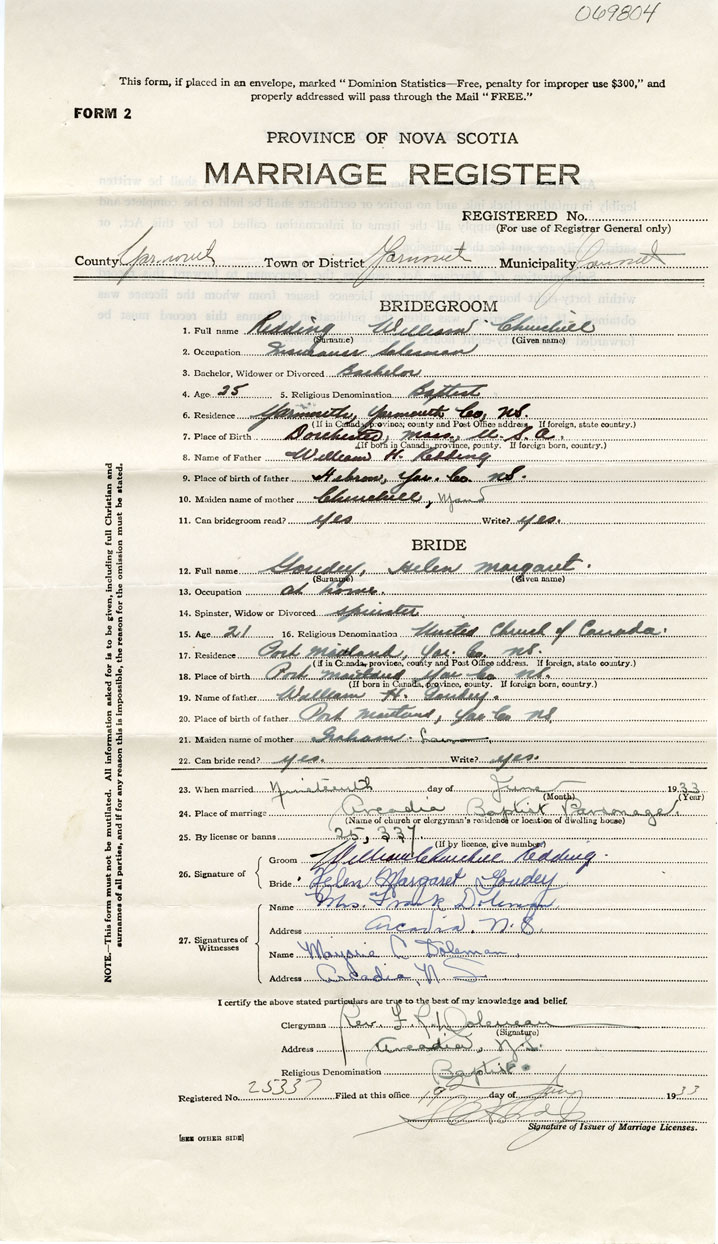 069804
This form, if placed in an envelope, marked "Dominion Statistics—Free, penalty for improper use $300," and
properly addressed will pass through the Mail "FREE."
FORM 2
PROVINCE OF NOVA SCOTIA
MARRIAGE REGISTER
REGISTERED No.
(For use of Registrar General only)
County Yarmouth Town or District Yarmouth Municipality Yarmouth
BRIDEGROOM
1. Full name Redding William Churchill
(Surname) (Given name)
2. Occupation Insurance Salesman
3. Bachelor, Widower or Divorced Bachelor
4. Age 25 5. Religious Denomination Baptist
6. Residence Yarmouth, Yarmouth Co, NS.
(If in Canada, province, county and Post Office address. If foreign, state country.)
7. Place of Birth Dorchester, Mass., U.S.A.
(If born in Canada, province, county. If foreign born, country.)
8. Name of Father William H. Redding
9. Place of birth of father Hebron, Yar. Co. NS.
10. Maiden name of mother Churchill,
11. Can bridegroom read? yes Write? yes.
BRIDE
12. Full name Goudey, Helen Margaret.
(Surname) (Given name)
13. Occupation at home.
14. Spinster, Widow or Divorced Spinster
15. Age 21 16. Religious Denomination United Church of Canada.
17. Residence Port Maitland, Yar. Co. NS.
(if in Canada, province, county and Post Office address. If foreign, state country.)
18. Place of birth Port Maitland Yar Co NS.
(If born in Canada, province, county. If foreign born, country.)
19. Name of father William H. Goudey.
20. Place of birth of father Port Maitland, Yar Co NS.
21. Maiden name of mother Graham.
22. Can bride read? yes. Write? yes.
23. When married Nineteenth day of June 1933
(Month) (Year)
24. Place of marriage Arcadia Baptist Parsonage.
(Name of church or clergyman's residence or location of dwelling house)
25. By license or banns 25,337.
(If by licence, give number)
26. Signature of
Groom William Churchill Redding.
Bride Helen Margaret Goudey
27. Signatures of Witnesses
Name Mrs. Frank Doleman
Address Arcadia, N.S.
Name Marjorie C Doleman.
Address Arcadia, N.S.
I certify the above stated particulars are true to the best of my knowledge and belief.
Clergyman Rev. F. R. Doleman
(Signature)
Address Arcadia, N.S.
Religious Denomination Baptist.
Registered No. 25337 Filed at this office 19 day of June 1933
Signature of Issuer of Marriage Licenses.
[SEE OTHER SIDE]
NOTE.—This form must not be mutilated. All information asked for is to be given, including full Christian and
surnames of all parties, and if for any reason this is impossible, the reason for the omission must be stated.